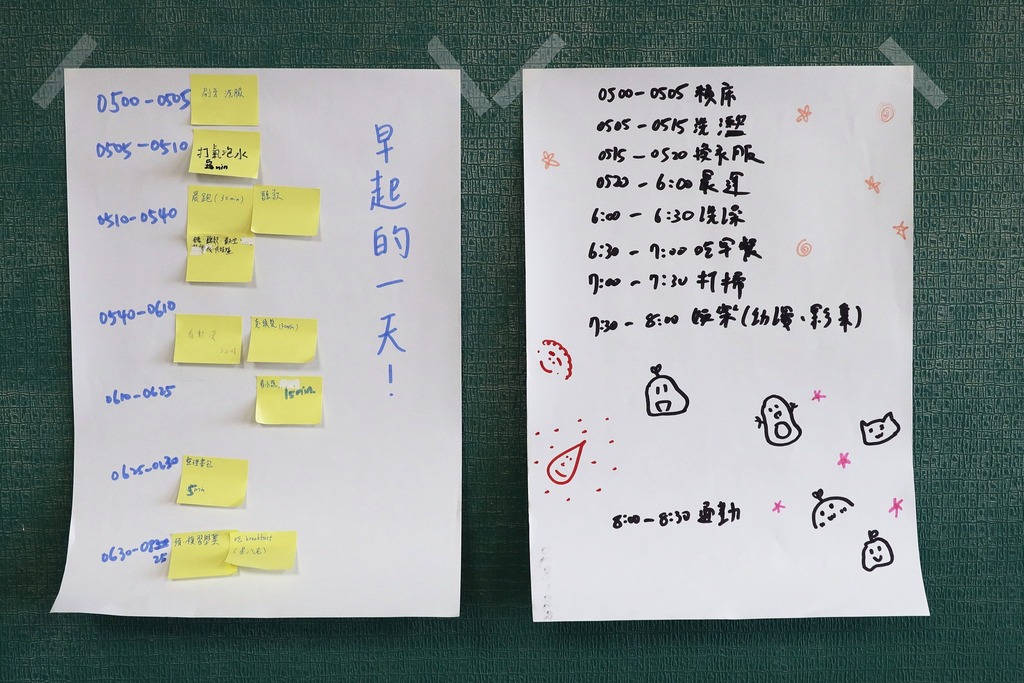 早起的一天！
0500-0505
刷牙 洗臉
0505-0510
打氣泡水
min
0510-0540
晨跑(30min)
聽歌
0540-0610
0610-0625
15min
0625-0630
整理書包
5min
0630-08
25
預.複習學業
吃breakfast
0500-0505 賴床
0505-0515 洗漱
0515-0520 換衣服
0520-6:00 晨運
6:00-6:30 洗澡
6:30-7:00 吃早餐
7:00-7:30 打掃
7:30-8:00 娛樂(動漫、影集)
8:00-8:30 通勤